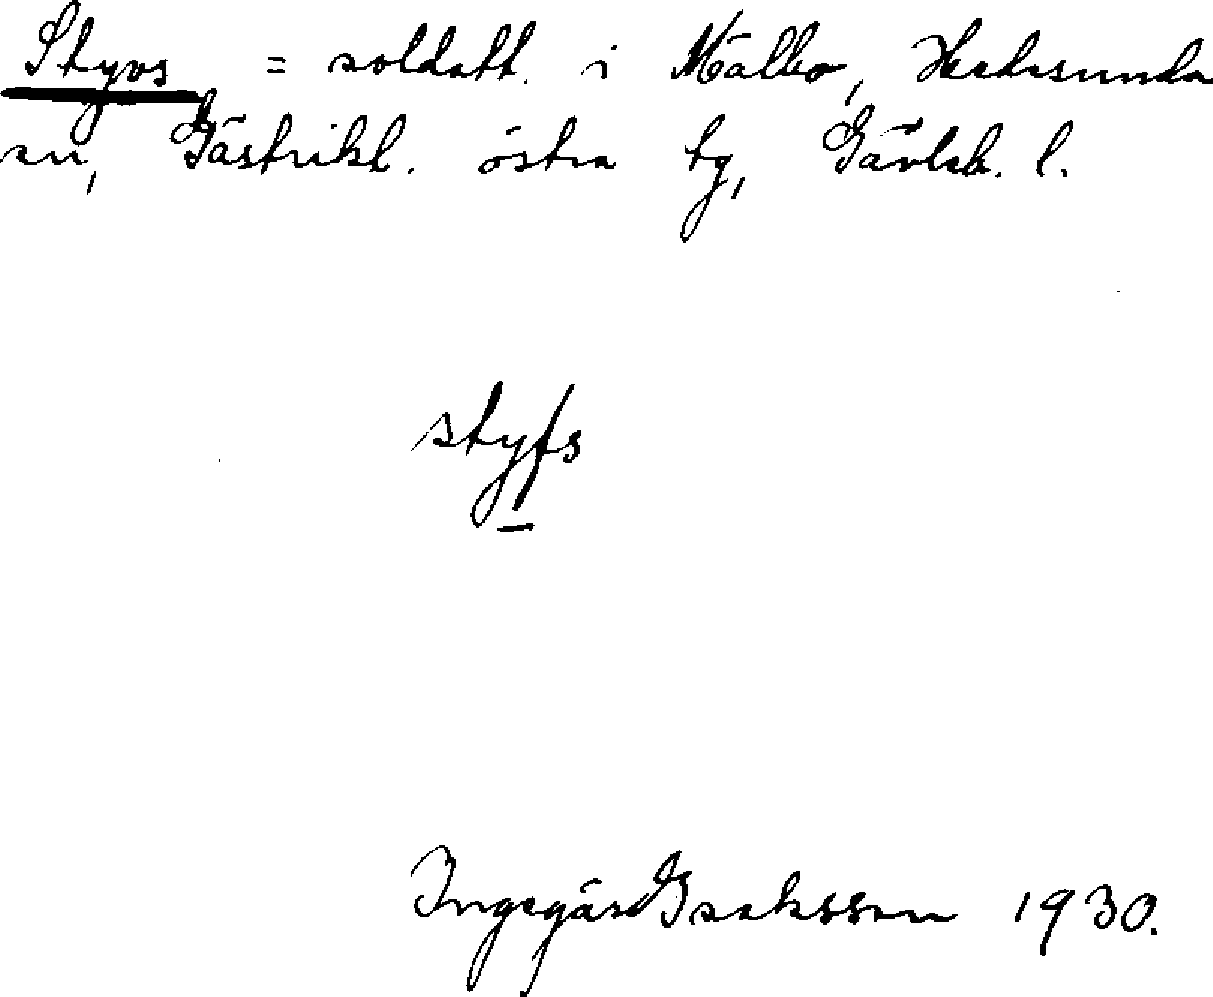 Styvs = soldatt. i Målbo, Hedesunda
sn, Gästrikl. östra tg, Gävleb. l.
styfs
Ingegärd Isaksson 1930.